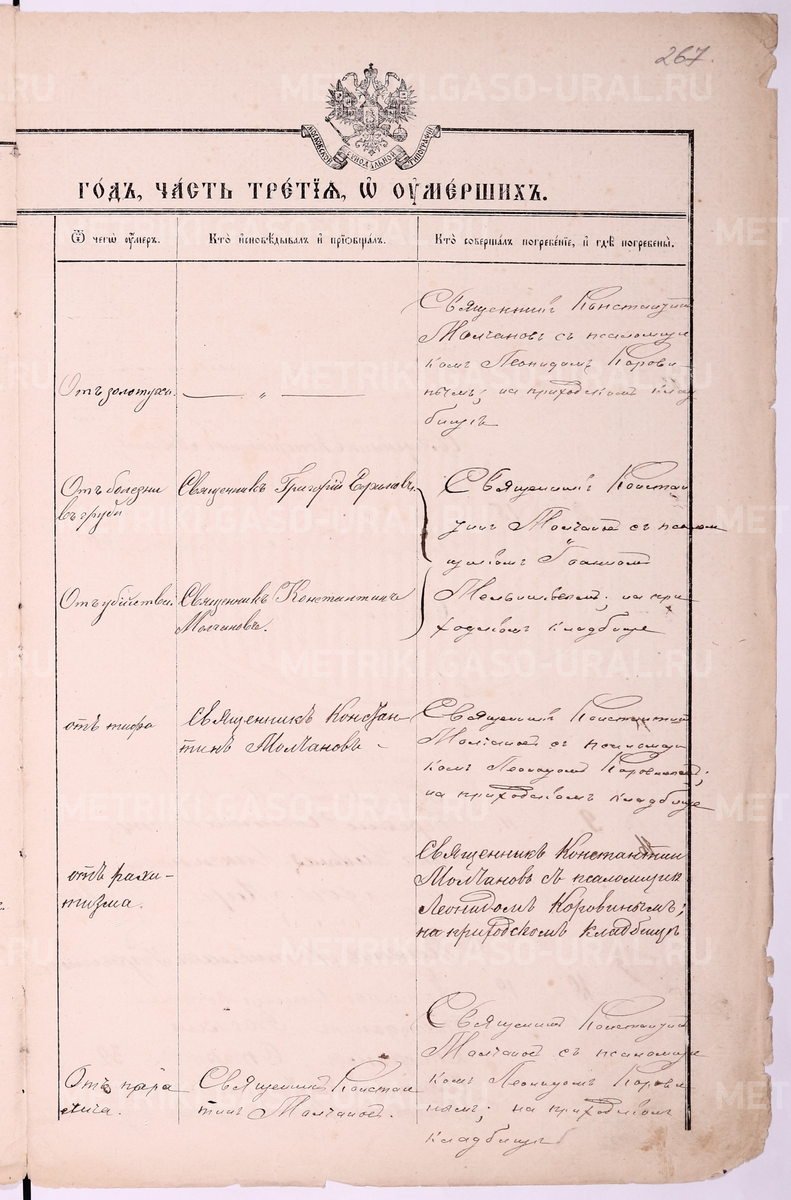 267.
МОСКОВСКОЙ СѴНОДАЛЬНОЙ ТИПОГРАФІИ
ГО́ДЪ, ЧА́СТЬ ТРЕ́ТІѦ, Ѡ҆ ОУ҆МЕ́РШИХЪ.
Ѿ чегѡ̀ оу҆́меръ.
Кто̀ и҆сповѣ́дывалъ и҆ прїѡбща́лъ.
Кто̀ соверша́лъ погребе́нїе, и҆ гдѣ̀ погребены̀.
Отъ золотухи.
— „ —
Священникъ Константинъ
Молчановъ съ псаломщи
комъ Леонидомъ Корови
нымъ; на приходскомъ клад
бищѣ
Отъ болезни
въ груди
Священникъ Григорій
Священникъ Констан
тинъ Молчановъ съ псалом
щикомъ Іоанномъ
на при
ходскомъ кладбище
Отъ убійства
Священникъ Константинъ
Молчановъ.
отъ тифа
Священникъ Констан-
тинъ Молчановъ -
Священникъ Константинъ
Молчановъ съ псаломщи
комъ Леонидомъ Коровинымъ;
на приходскомъ кладбище
отъ рахи-
тизма.
Священникъ Константин
Молчановъ съ псаломщик
Леонидомъ Коровинымъ;
на приходскомъ кладбищѣ
Отъ пара
лича.
Священникъ Констан
тинъ Молчановъ.
Священникъ Константинъ
Молчановъ съ псаломщи
комъ Леонидомъ Корови
нымъ; на приходскомъ
кладбищѣ
METRIKI.GASO-URAL.RU